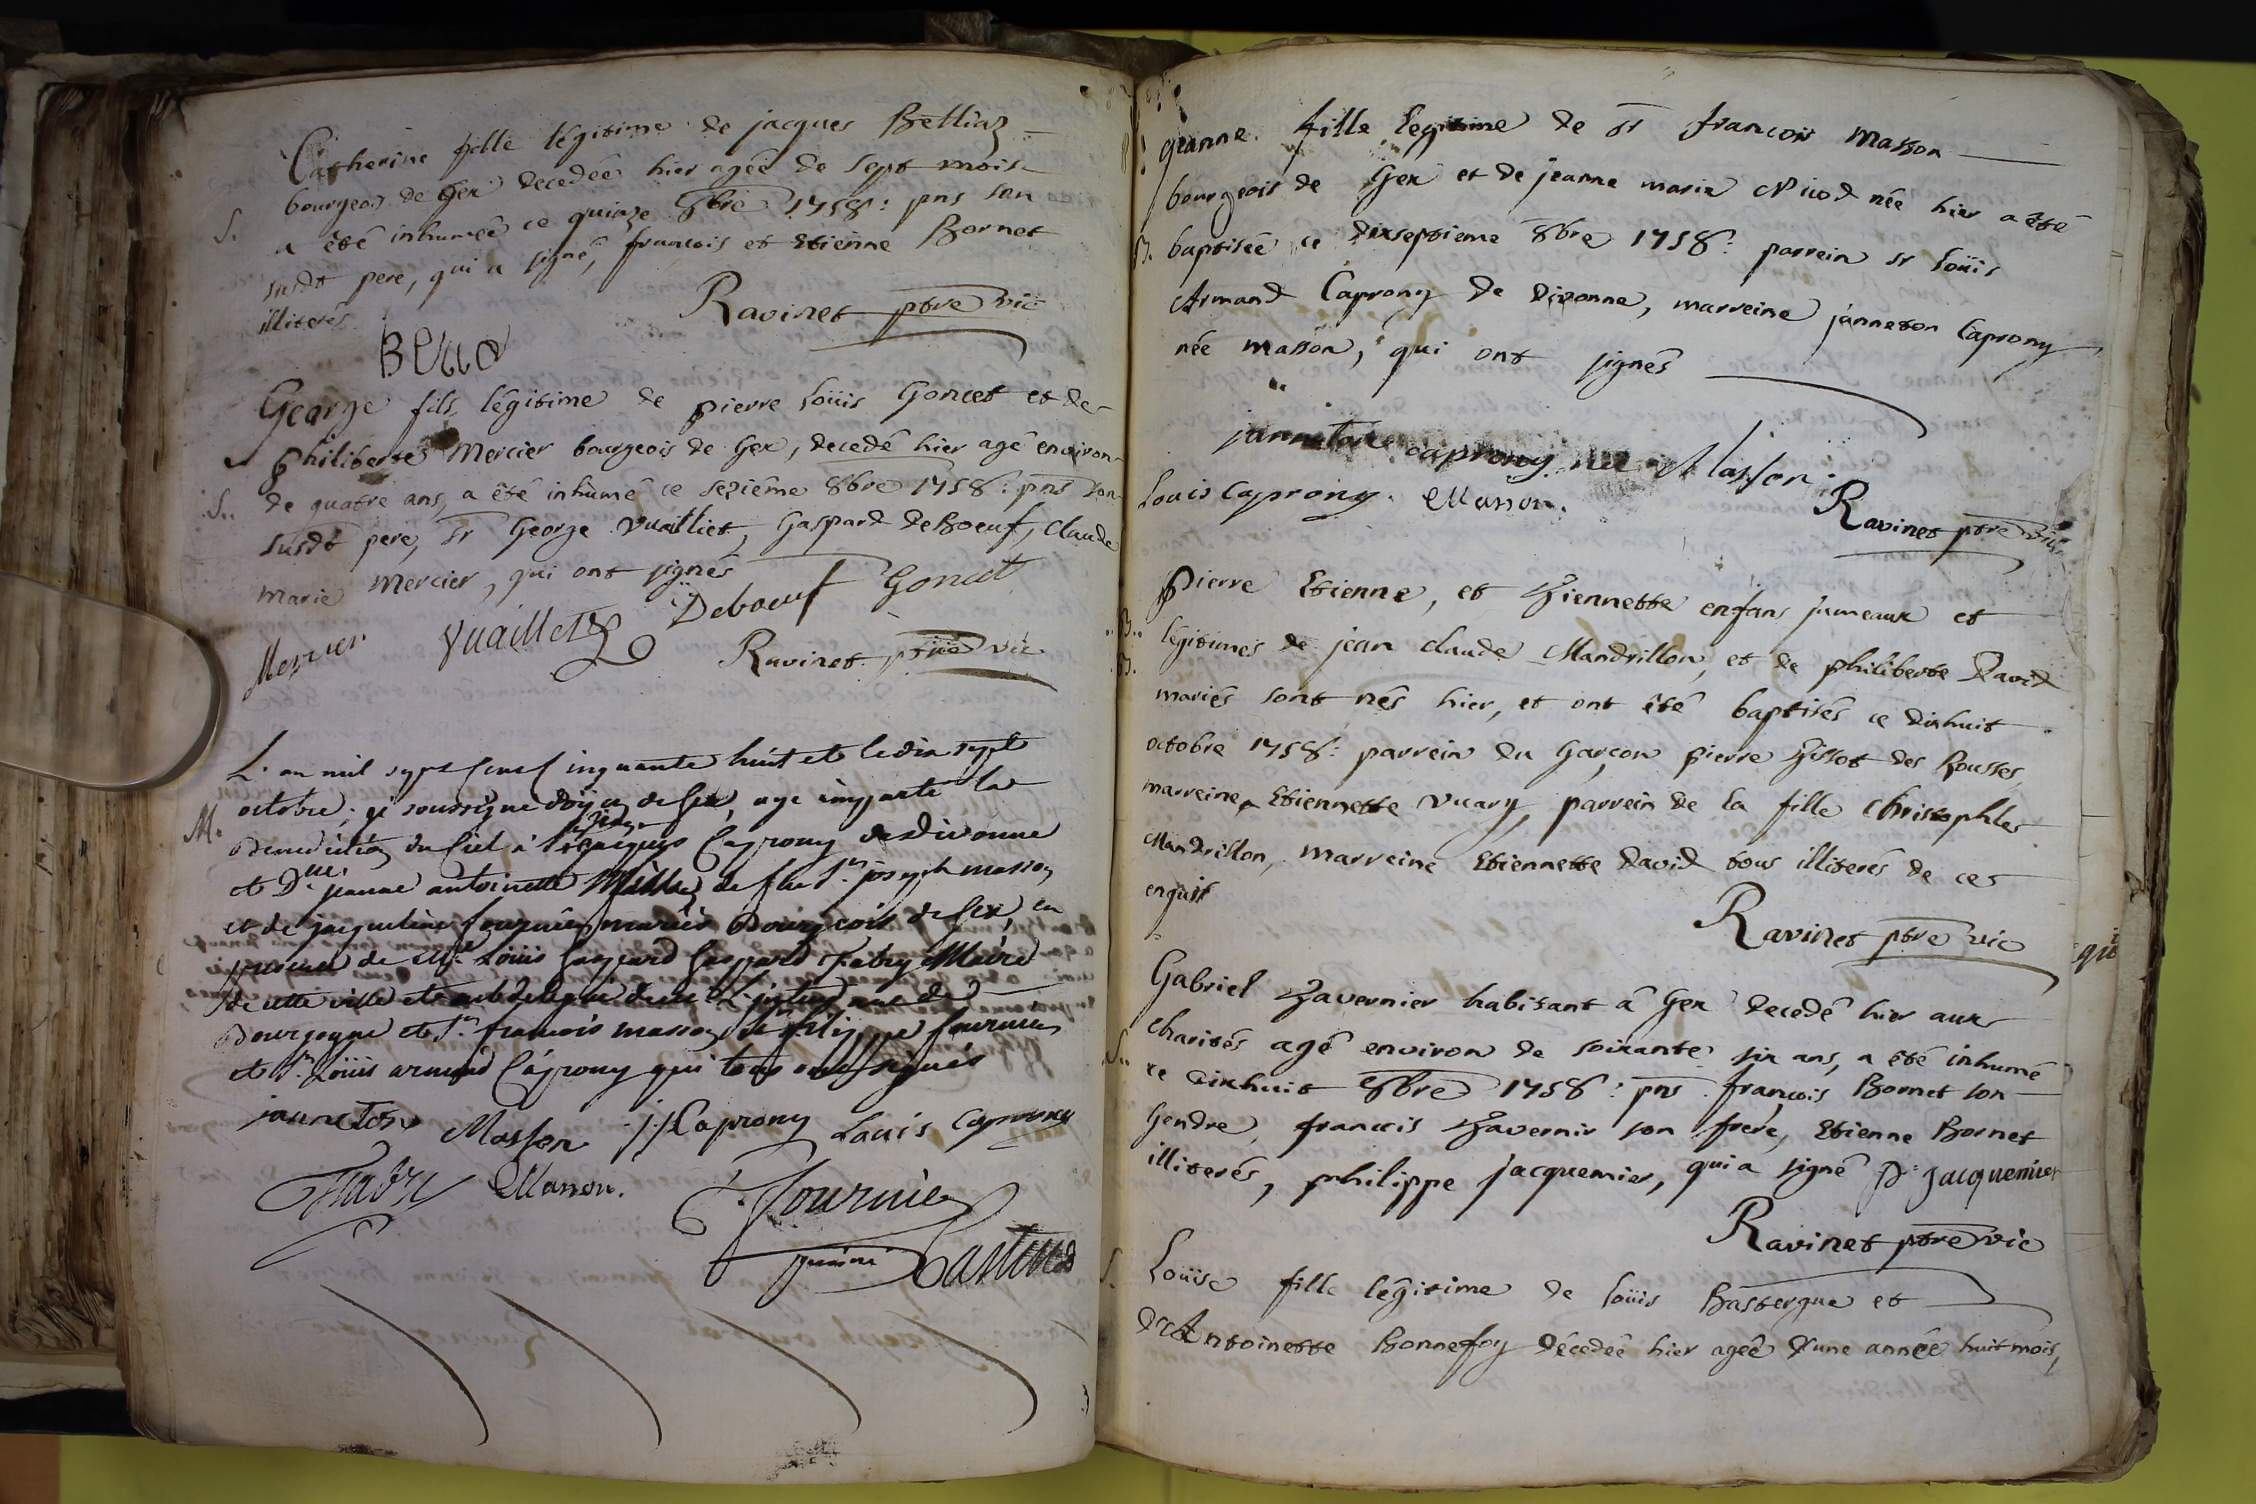 Catherine fille légitime de jacques Belliaz
bourgeois de Gex decedée hier agée de sept mois
S. a êté inhumée ce quinze 8bre 1758: pns son
susdt pere, qui a signé, francois et Etienne Bornet
illiterés Ravinet ptre vic
George fils légitime de pierre Loüis Goncet et de
philiberte Mercier bourgeois de Gex, decedé hier agé environ
.S.. de quatre ans, a êté inhumé ce sezième 8bre 1758: pns son
susdt pere, sr George Vuailliet, Gaspard deBoeuf, Claude
marie Mercier, qui ont signés
Mercier Vuaillet Deboeuf Goncet
Ravinet ptre vic
L'an mil sept cens cinquante huit et le dix sept
M. octobre, je soussigné doÿen de Gex, ay imparti la
Benediction du Ciel à jacques Caprony de divonne
et Dlle jeanne antoinette de feu Sr joseph masson
et de jacqueline fournier mariés Bourgeois de Gex, en
presence de Mr Loüis Gaspard Gaspard Fabry Maire
de cette ville et subdelegué de de
Bourgogne et Sr francois masson Sr philippe fournier
et Sr Loüis armand Caprony qui tous ont signés
janneton Masson j: Caprony Louis Caprony
Fabry Masson. Fournier
Castin
jeanne fille legitime de sr francois Masson
bourgeois de Gex et de jeanne marie Nicod née hier a êté
B. baptisée ce dixseptieme 8bre 1758: parrein sr Loüis
Armand Caprony de divonne, marreine janneton Caprony
née masson, qui ont signés
janneton caprony née Masson
Louis Caprony. Masson.
Ravinet ptre vic
Pierre Etienne, et Etiennette enfans jumeaux et
..B.. légitimes de jean claude Mandrillon, et de philiberte David
B. mariés sont nés hier, et ont êté baptisés ce dixhuit
octobre 1758: parrein du Garçon pierre des Rousses
marreine Etiennette Vuary, parrein de la fille Christophle
Mandrillon, marreine Etiennette David tous illiterés de ce
enquis
Ravinet ptre vic
Gabriel Tavernier habitant à Gex decedé hier aux
.S.. charités agé environ de soixante six ans, a êté inhumé
ce dixhuit 8bre 1758: pns francois Bornet son
Gendre, francois Tavernir son frere, Etienne Bornet
illiterés, philippe jacquemier, qui a signé P. Jacquemier
Ravinet ptre vic
S. Loüise fille légitime de Loüis Bastergue et
d'Antoinette Bonnefoy décedée hier agée d'une année huit mois,